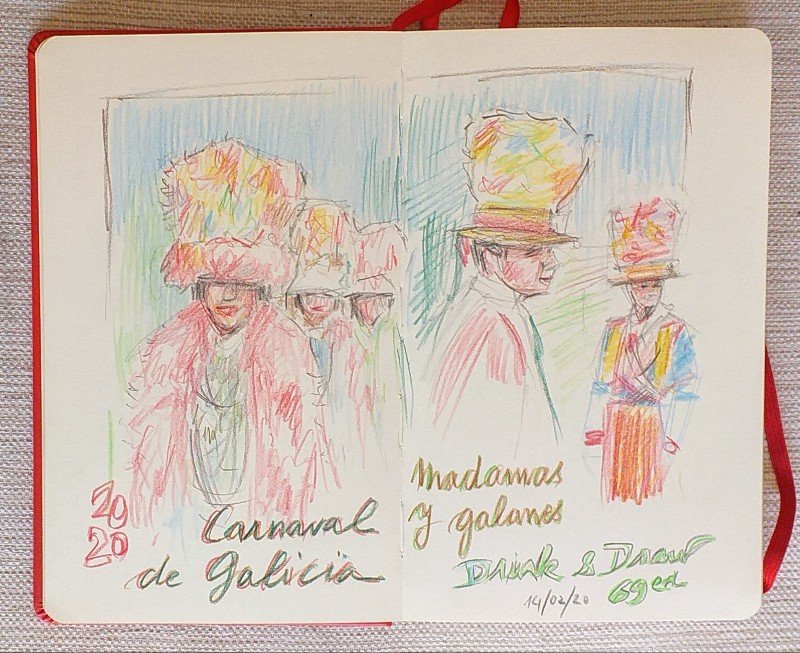 20
20
Carnaval
de Galicia
Madamas
y galanes
Drink & Draw
69ed
14/02/20